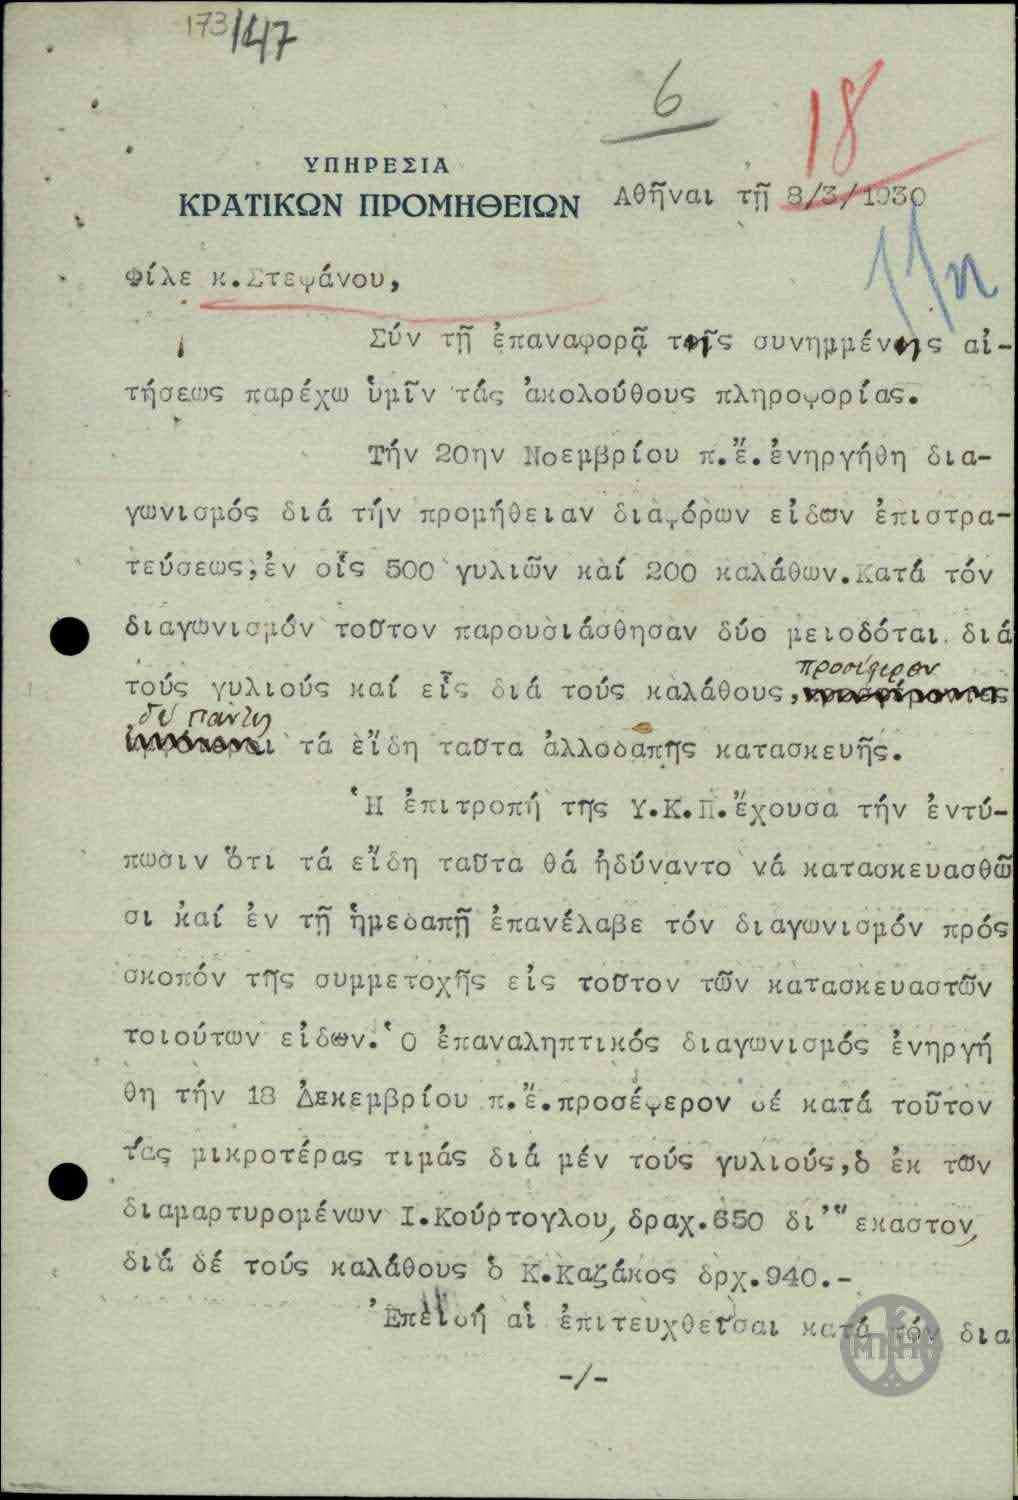 173/147
6
18
ΥΠΗΡΕΣΙΑ
ΚΡΑΤΙΚΩΝ ΠΡΟΜΗΘΕΙΩΝ
Ἀθῆναι τῇ 8/3/1930
Φίλε κ.Στεφάνου,
Σύν τῇ ἐπαναφορᾷ τῆς συνημμένης αἰ-
τήσεως παρέχω ὑμῖν τάς ἀκολούθους πληροφορίας.
Τήν 20ην Νοεμβρίου π.ἔ.ἐνηργήθη δια-
γωνισμός διά τήν προμήθειαν διαφόρων εἰδῶν ἐπιστρα-
τεύσεως,ἐν οἷς 500 γυλιῶν καί 200 καλάθων.Κατά τόν
διαγωνισμόν τοῦτον παρουσιάσθησαν δύο μειοδόται διά
προσέφερον
τούς γυλιούς καί εἷς διά τούς καλάθους,
δέ πάντες
τά εἴδη ταῦτα ἀλλοδαπῆς κατασκευῆς.
Ἡ ἐπιτροπή τῆς Υ.Κ.Π.ἔχουσα τήν ἐντύ-
πωσιν ὅτι τά εἴδη ταῦτα θά ἠδύναντο νά κατασκευασθῶ
σι καί ἐν τῇ ἡμεδαπῇ ἐπανέλαβε τόν διαγωνισμόν πρός
σκοπόν τῆς συμμετοχῆς εἰς τοῦτον τῶν κατασκευαστῶν
τοιούτων εἰδῶν.Ὁ ἐπαναληπτικός διαγωνισμός ἐνηργή
θη τήν 18 Δεκεμβρίου π.ἔ.προσέφερον δέ κατά τοῦτον
τάς μικροτέρας τιμάς διά μέν τούς γυλιούς,ὁ ἐκ τῶν
διαμαρτυρομένων Ι.Κούρτογλου, δραχ.650 δι' ἕκαστον,
διά δέ τούς καλάθους ὁ Κ.Καζάκος δρχ.940.-
Ἐπειδή αἱ ἐπιτευχθεῖσαι κατά τόν δια
-/-